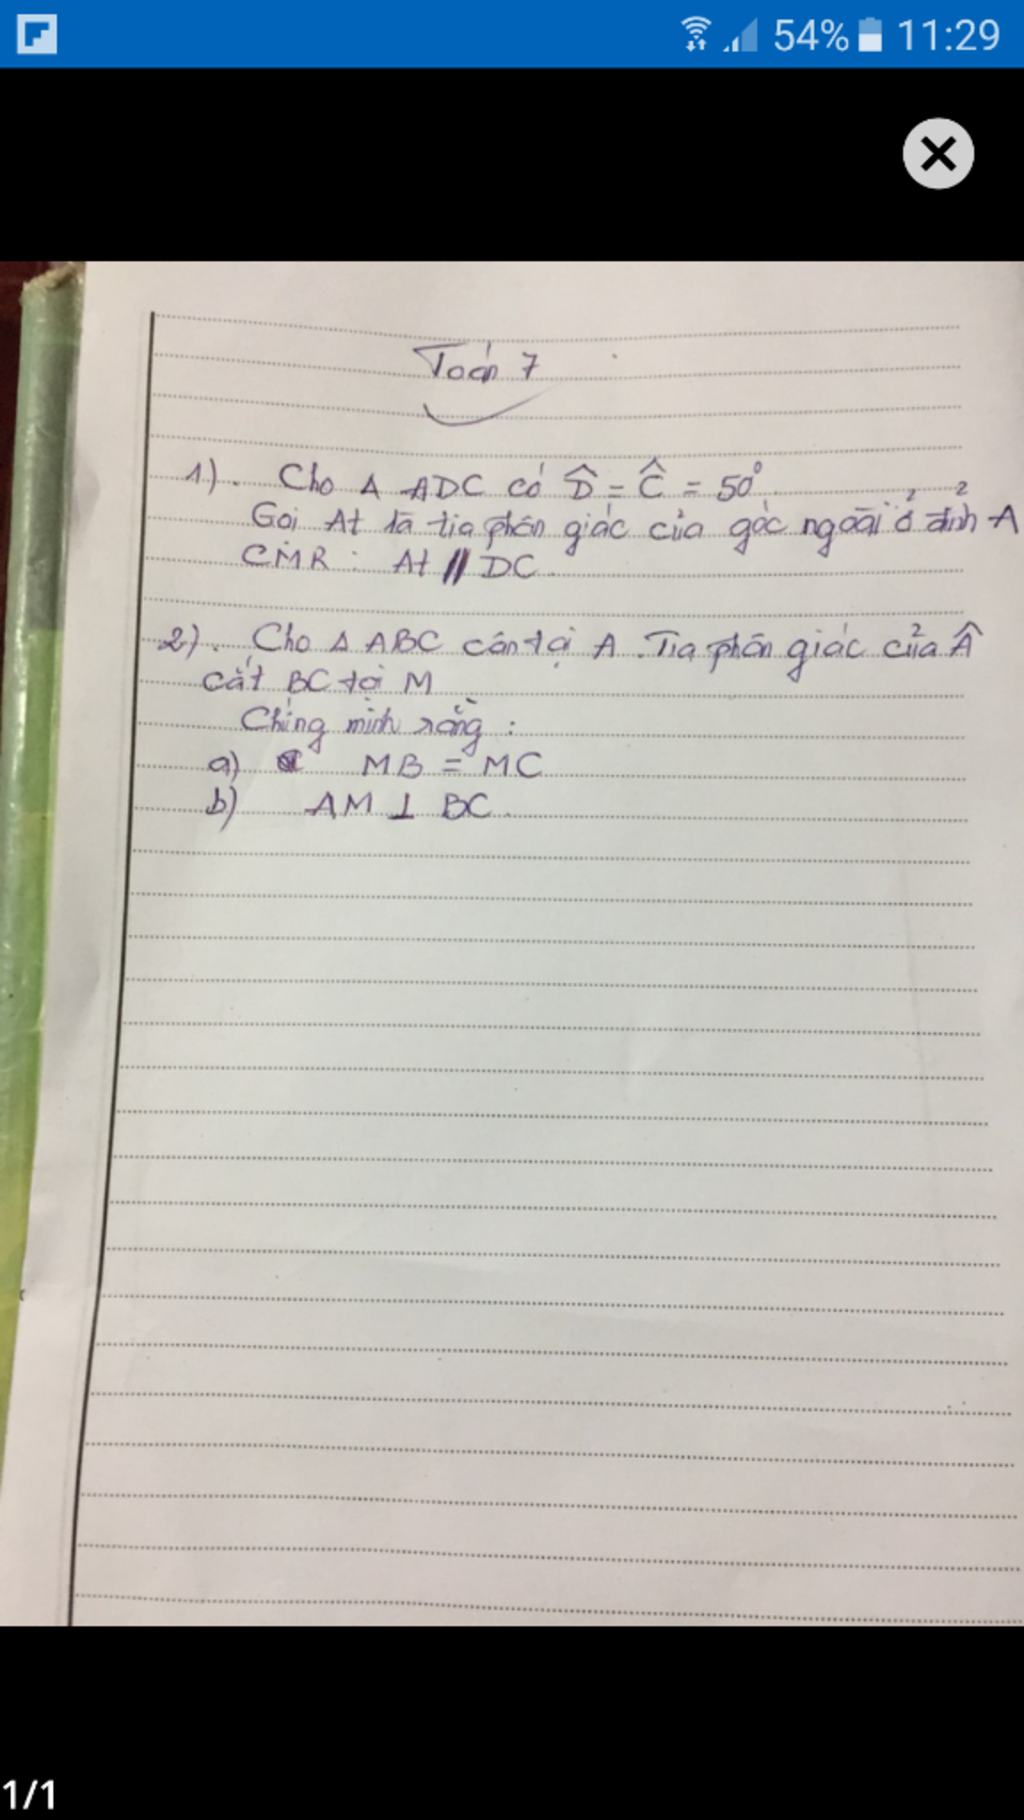 54% 11:29
Toán 7
1). Cho Δ ADC có D̂ = Ĉ = 50°
Gọi At là tia phân giác của góc ngoài ở đỉnh A
CMR : At // DC
2). Cho Δ ABC cân tại A. Tia phân giác của Â
cắt BC tại M
Chứng minh rằng :
a) MB = MC
b) AM ⊥ BC.
1/1